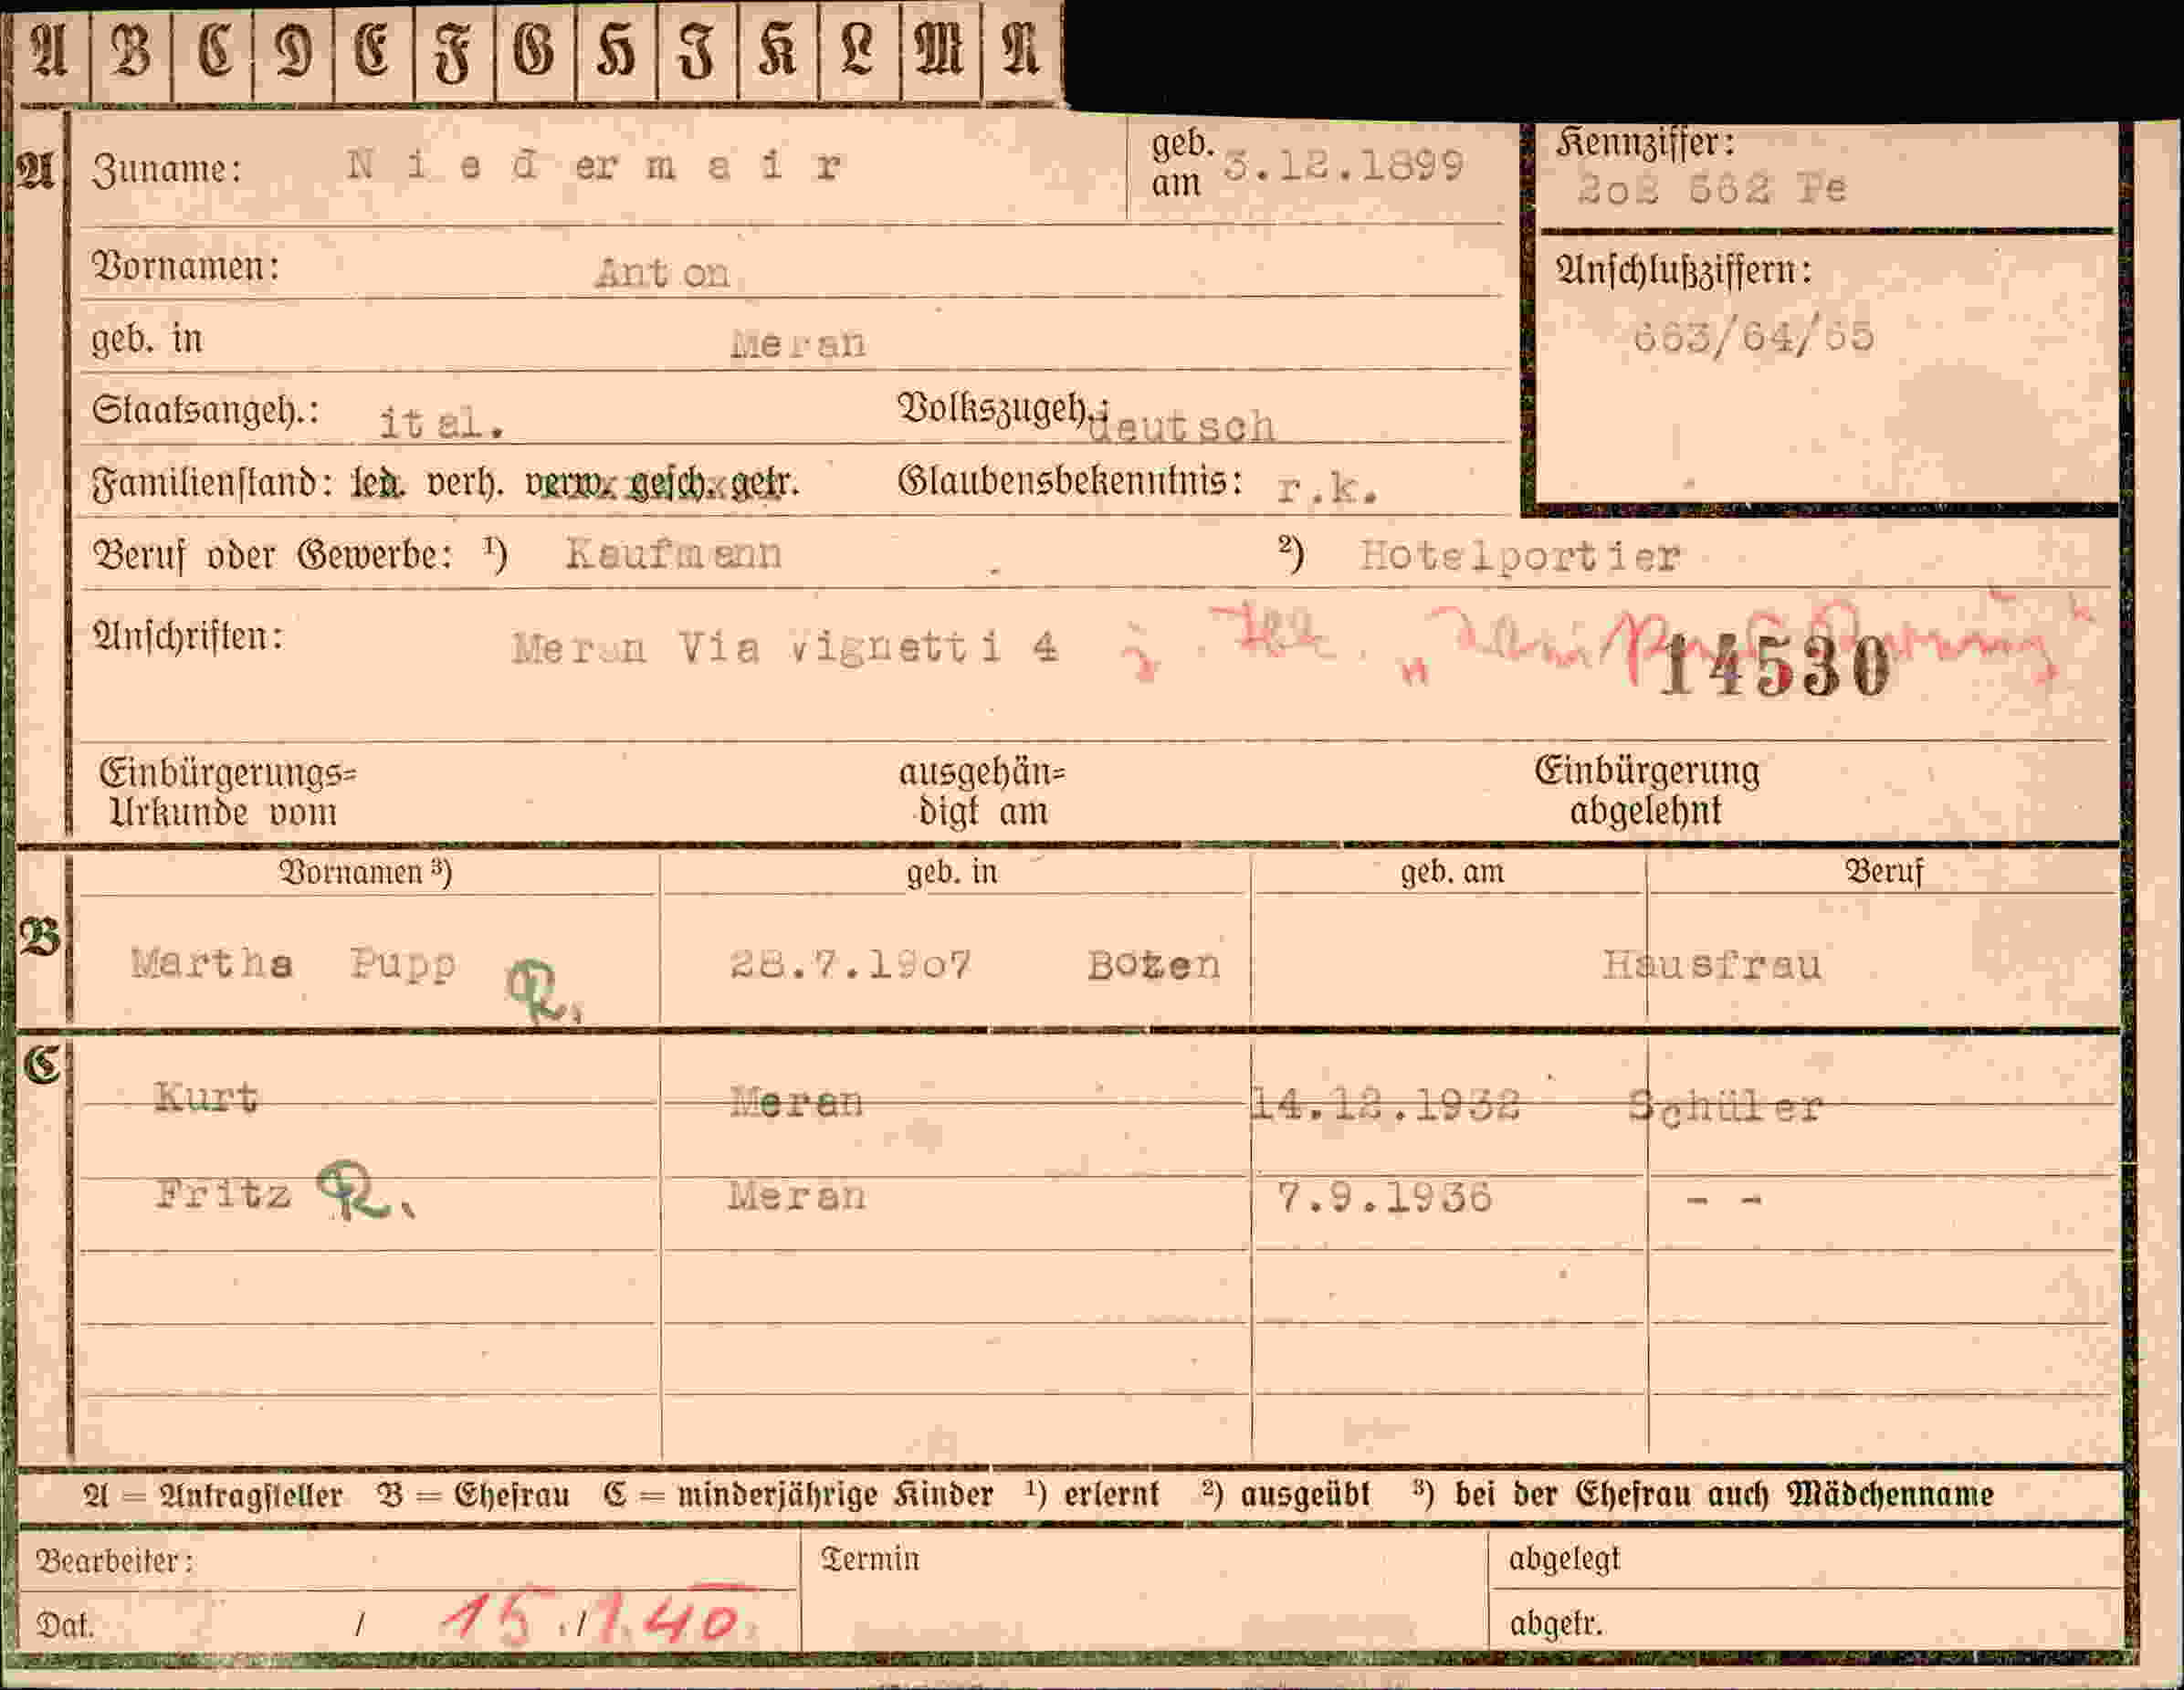 A B C D E F G H I K L M N
A Zuname: Niedermair geb. am 3.12.1899 Kennziffer: 2o2 662 Te
Vornamen: Anton Anschlußziffern:
geb. in Meran 663/64/65
Staatsangeh.: ital. Volkszugeh.: deutsch
Familienstand: led. verh. verw. gesch. getr. Glaubensbekenntnis: r.k.
Beruf oder Gewerbe: ¹) Kaufmann ²) Hotelportier
Anschriften: Meran Via vignetti 4 14530
Einbürgerungs= ausgehän= Einbürgerung
Urkunde vom digt am abgelehnt
Vornamen ³) geb. in geb. am Beruf
B Martha Pupp R. 28.7.19o7 Bozen Hausfrau
C Kurt Meran 14.12.1932 Schüler
Fritz R. Meran 7.9.1936 - -
A = Antragsteller B = Ehefrau C = minderjährige Kinder ¹) erlernt ²) ausgeübt ³) bei der Ehefrau auch Mädchenname
Bearbeiter: Termin abgelegt
Dat. / 15./1.40 abgetr.